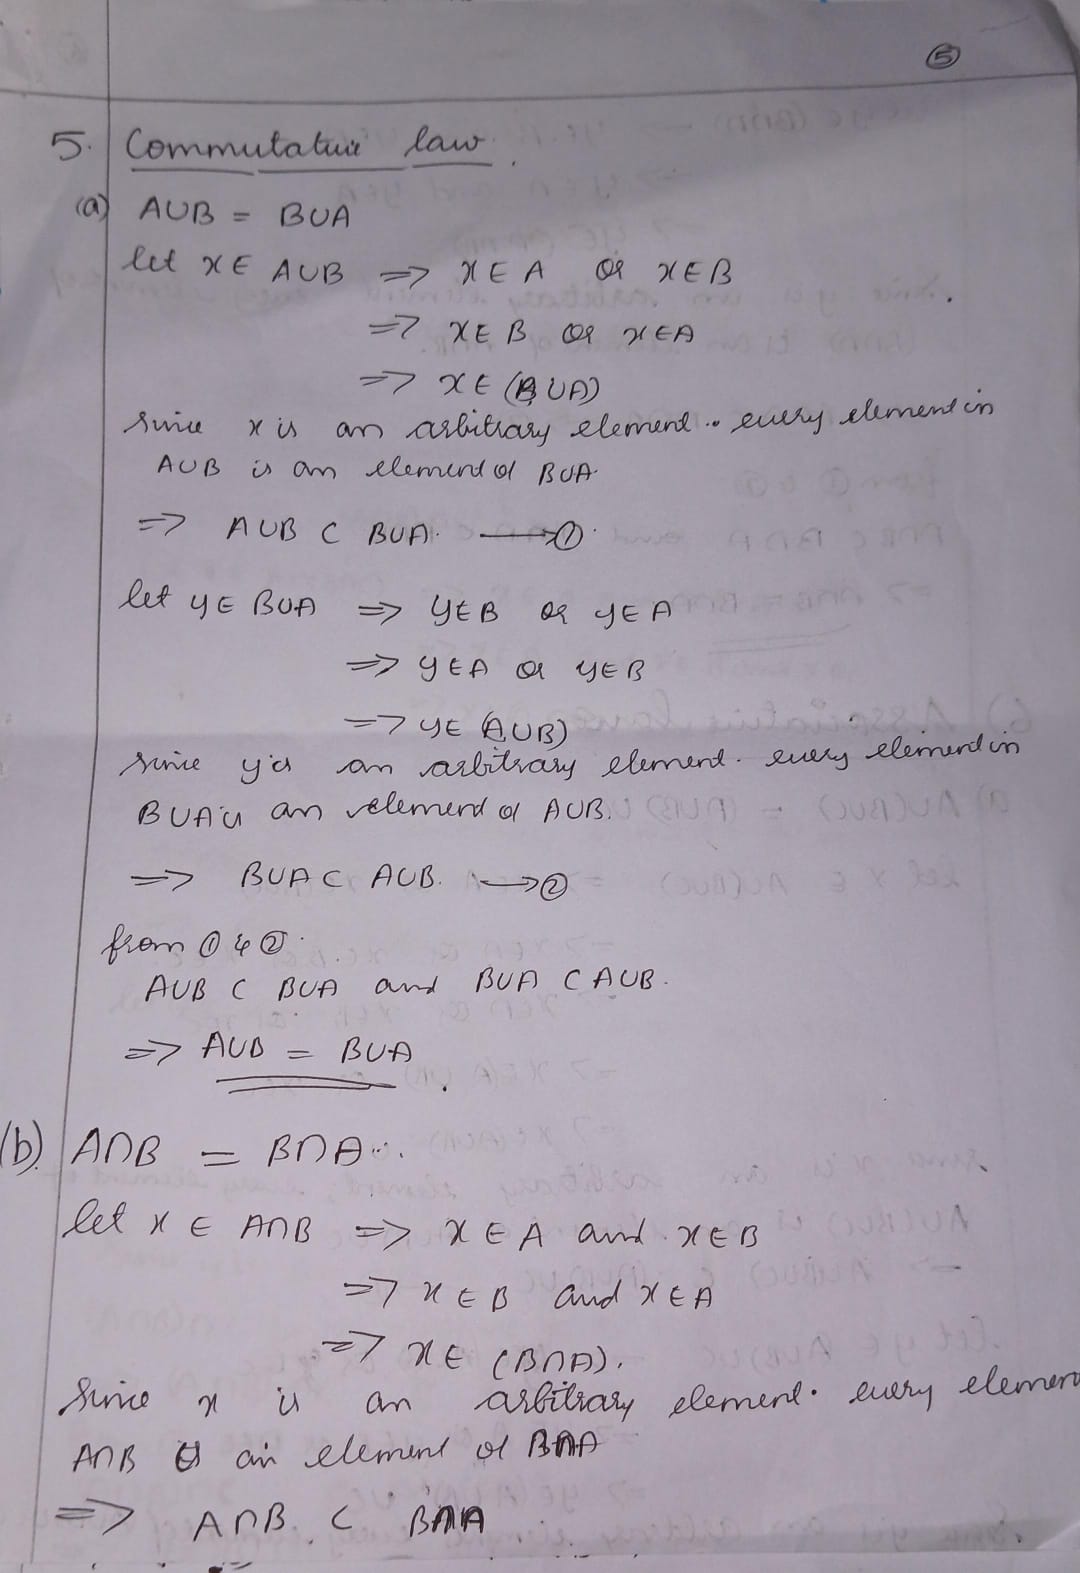 ⑤
5. Commutative law.
(a) AUB = BUA
let x ∈ AUB => x ∈ A or x ∈ B
=> x ∈ B or x ∈ A
=> x ∈ (BUA)
Since x is an arbitrary element. every element in
AUB is an element of BUA.
=> AUB ⊂ BUA. ⟶①
let y ∈ BUA => y ∈ B or y ∈ A
=> y ∈ A or y ∈ B
=> y ∈ (AUB)
Since y is an arbitrary element. every element in
BUA is an element of AUB.
=> BUA ⊂ AUB. ⟶②
from ① & ②.
AUB ⊂ BUA and BUA ⊂ AUB.
=> AUB = BUA.
(b). A∩B = B∩A.
let x ∈ A∩B => x ∈ A and x ∈ B
=> x ∈ B and x ∈ A
=> x ∈ (B∩A).
Since x is an arbitrary element. every element
A∩B is an element of B∩A
=> A∩B. ⊂ B∩A